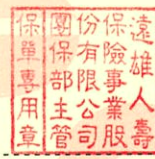 遠雄人壽
保險事業股
份有限公司
團保部主管
保單專用章